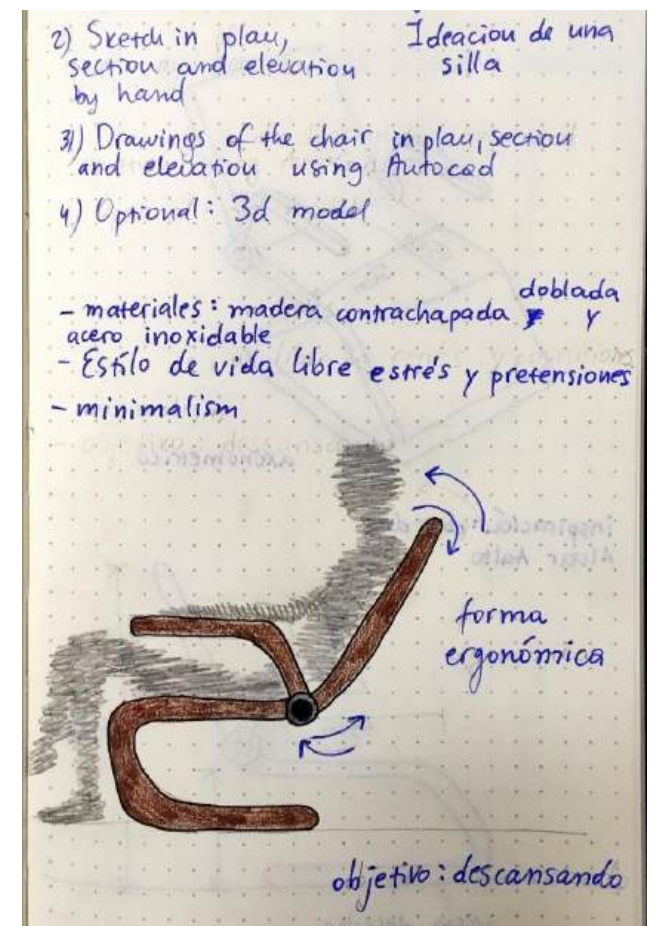 2) Sketch in plan,
section and elevation
by hand
Ideacion de una
silla
3) Drawings of the chair in plan, section
and elevation using Autocad
4) Optional: 3d model
- materiales: madera contrachapada doblada y
acero inoxidable
- Estilo de vida libre estrés y pretensiones
- minimalism
forma
ergonómica
objetivo: descansando